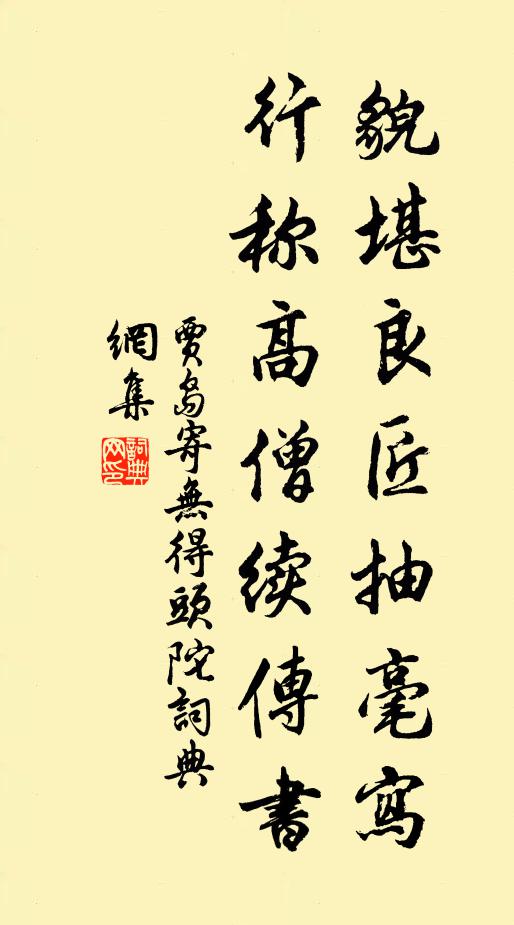 貌堪良匠抽毫寫
行称高僧续傳書
賈島寄無得頭陀詞典
網集
詞典
网印